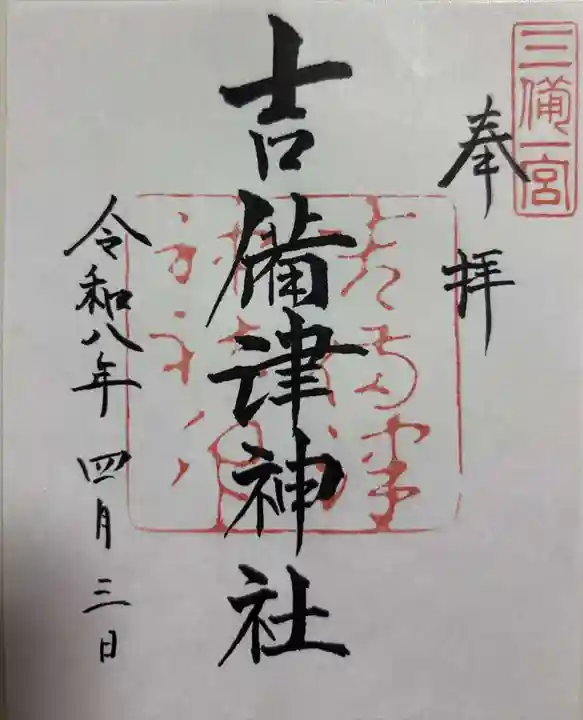 三備一宮
奉拝
吉備津神社
令和八年四月三日